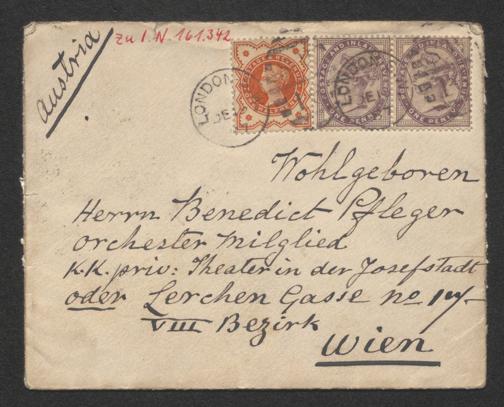 Austria
zu I. N. 161.342
LONDON
LONDON
Wohlgeboren
Herrn Benedict Pfleger
Orchester Mitglied
K.K. priv: Theater in der Josefstadt
oder Lerchen Gasse no
VIII Bezirk
Wien